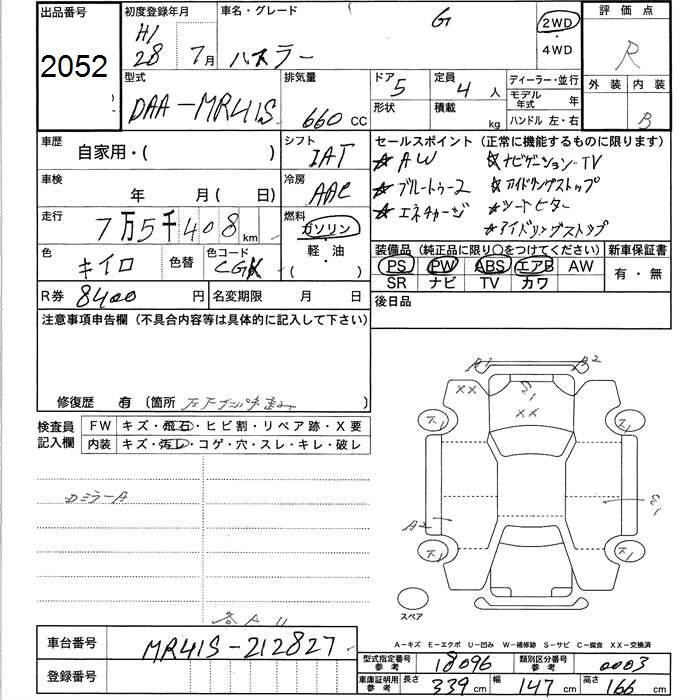 出品番号 初度登録年月 車名・グレード 評価点
2052 H/28 7月 ハスラー G 2WD ・ 4WD R
型式 排気量 ドア 5 定員 4 人 ディーラー・並行
DAA-MR41S 660 CC 形状 積載 kg モデル年式 年 外装 内装
ハンドル 左・右 B
車歴 自家用・( ) シフト IAT セールスポイント (正常に機能するものに限ります)
☆AW ☆ナビゲーション・TV
車検 年 月 ( 日) 冷房 AAC ☆ブルートゥース ☆アイドリングストップ
☆エネチャージ ☆シートヒター
☆アイドリングストップ
走行 7万5千408km 燃料 ガソリン ・ 軽・油 ・ ( )
色 キイロ 色替 色コード
装備品 (純正品に限り○をつけてください) 新車保証書
PS PW ABS エアB AW 有・無
SR ナビ TV カワ
R券 8400 円 名変期限 月 日 後日品
注意事項申告欄 (不具合内容等は具体的に記入して下さい)
修復歴 有 (箇所 )
検査員記入欄 FW キズ・飛石・ヒビ割・リペア跡・X要
内装 キズ・汚レ・コゲ・穴・スレ・キレ・破レ
A1 A2
XX
XX
A2
スペア
A-キズ E-エクボ U-凹み W-補修跡 S-サビ C-腐食 XX-交換済
車台番号 MR41S-212827
登録番号
型式指定番号 参考 18096 類別区分番号 参考 0003
車庫証明用 参考 長さ 339cm 幅 147cm 高さ 166cm